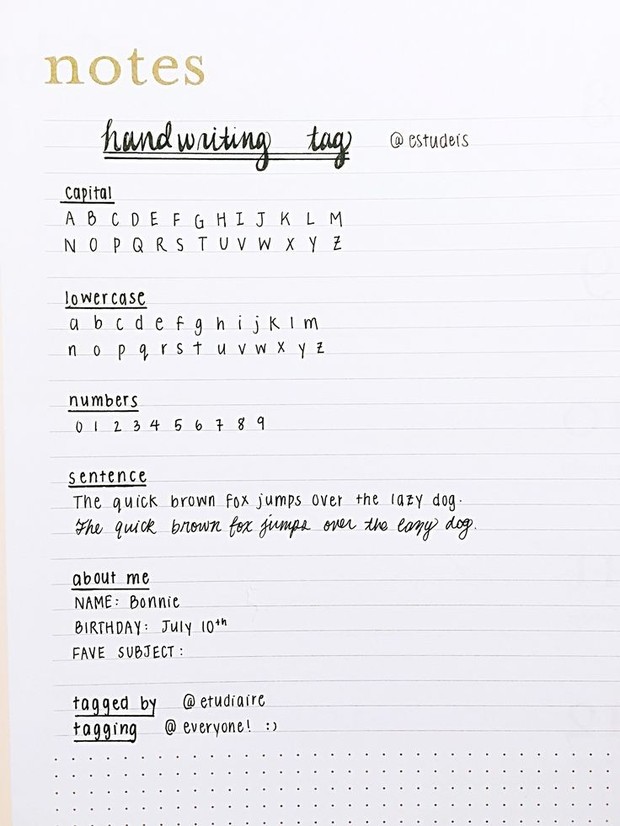 notes
handwriting tag @estudeis
capital
A B C D E F G H I J K L M
N O P Q R S T U V W X Y Z
lowercase
a b c d e f g h i j k l m
n o p q r s t u v w x y z
numbers
0 1 2 3 4 5 6 7 8 9
sentence
The quick brown fox jumps over the lazy dog.
The quick brown fox jumps over the lazy dog.
about me
NAME: Bonnie
BIRTHDAY: July 10th
FAVE SUBJECT:
tagged by @etudiaire
tagging @everyone! :)